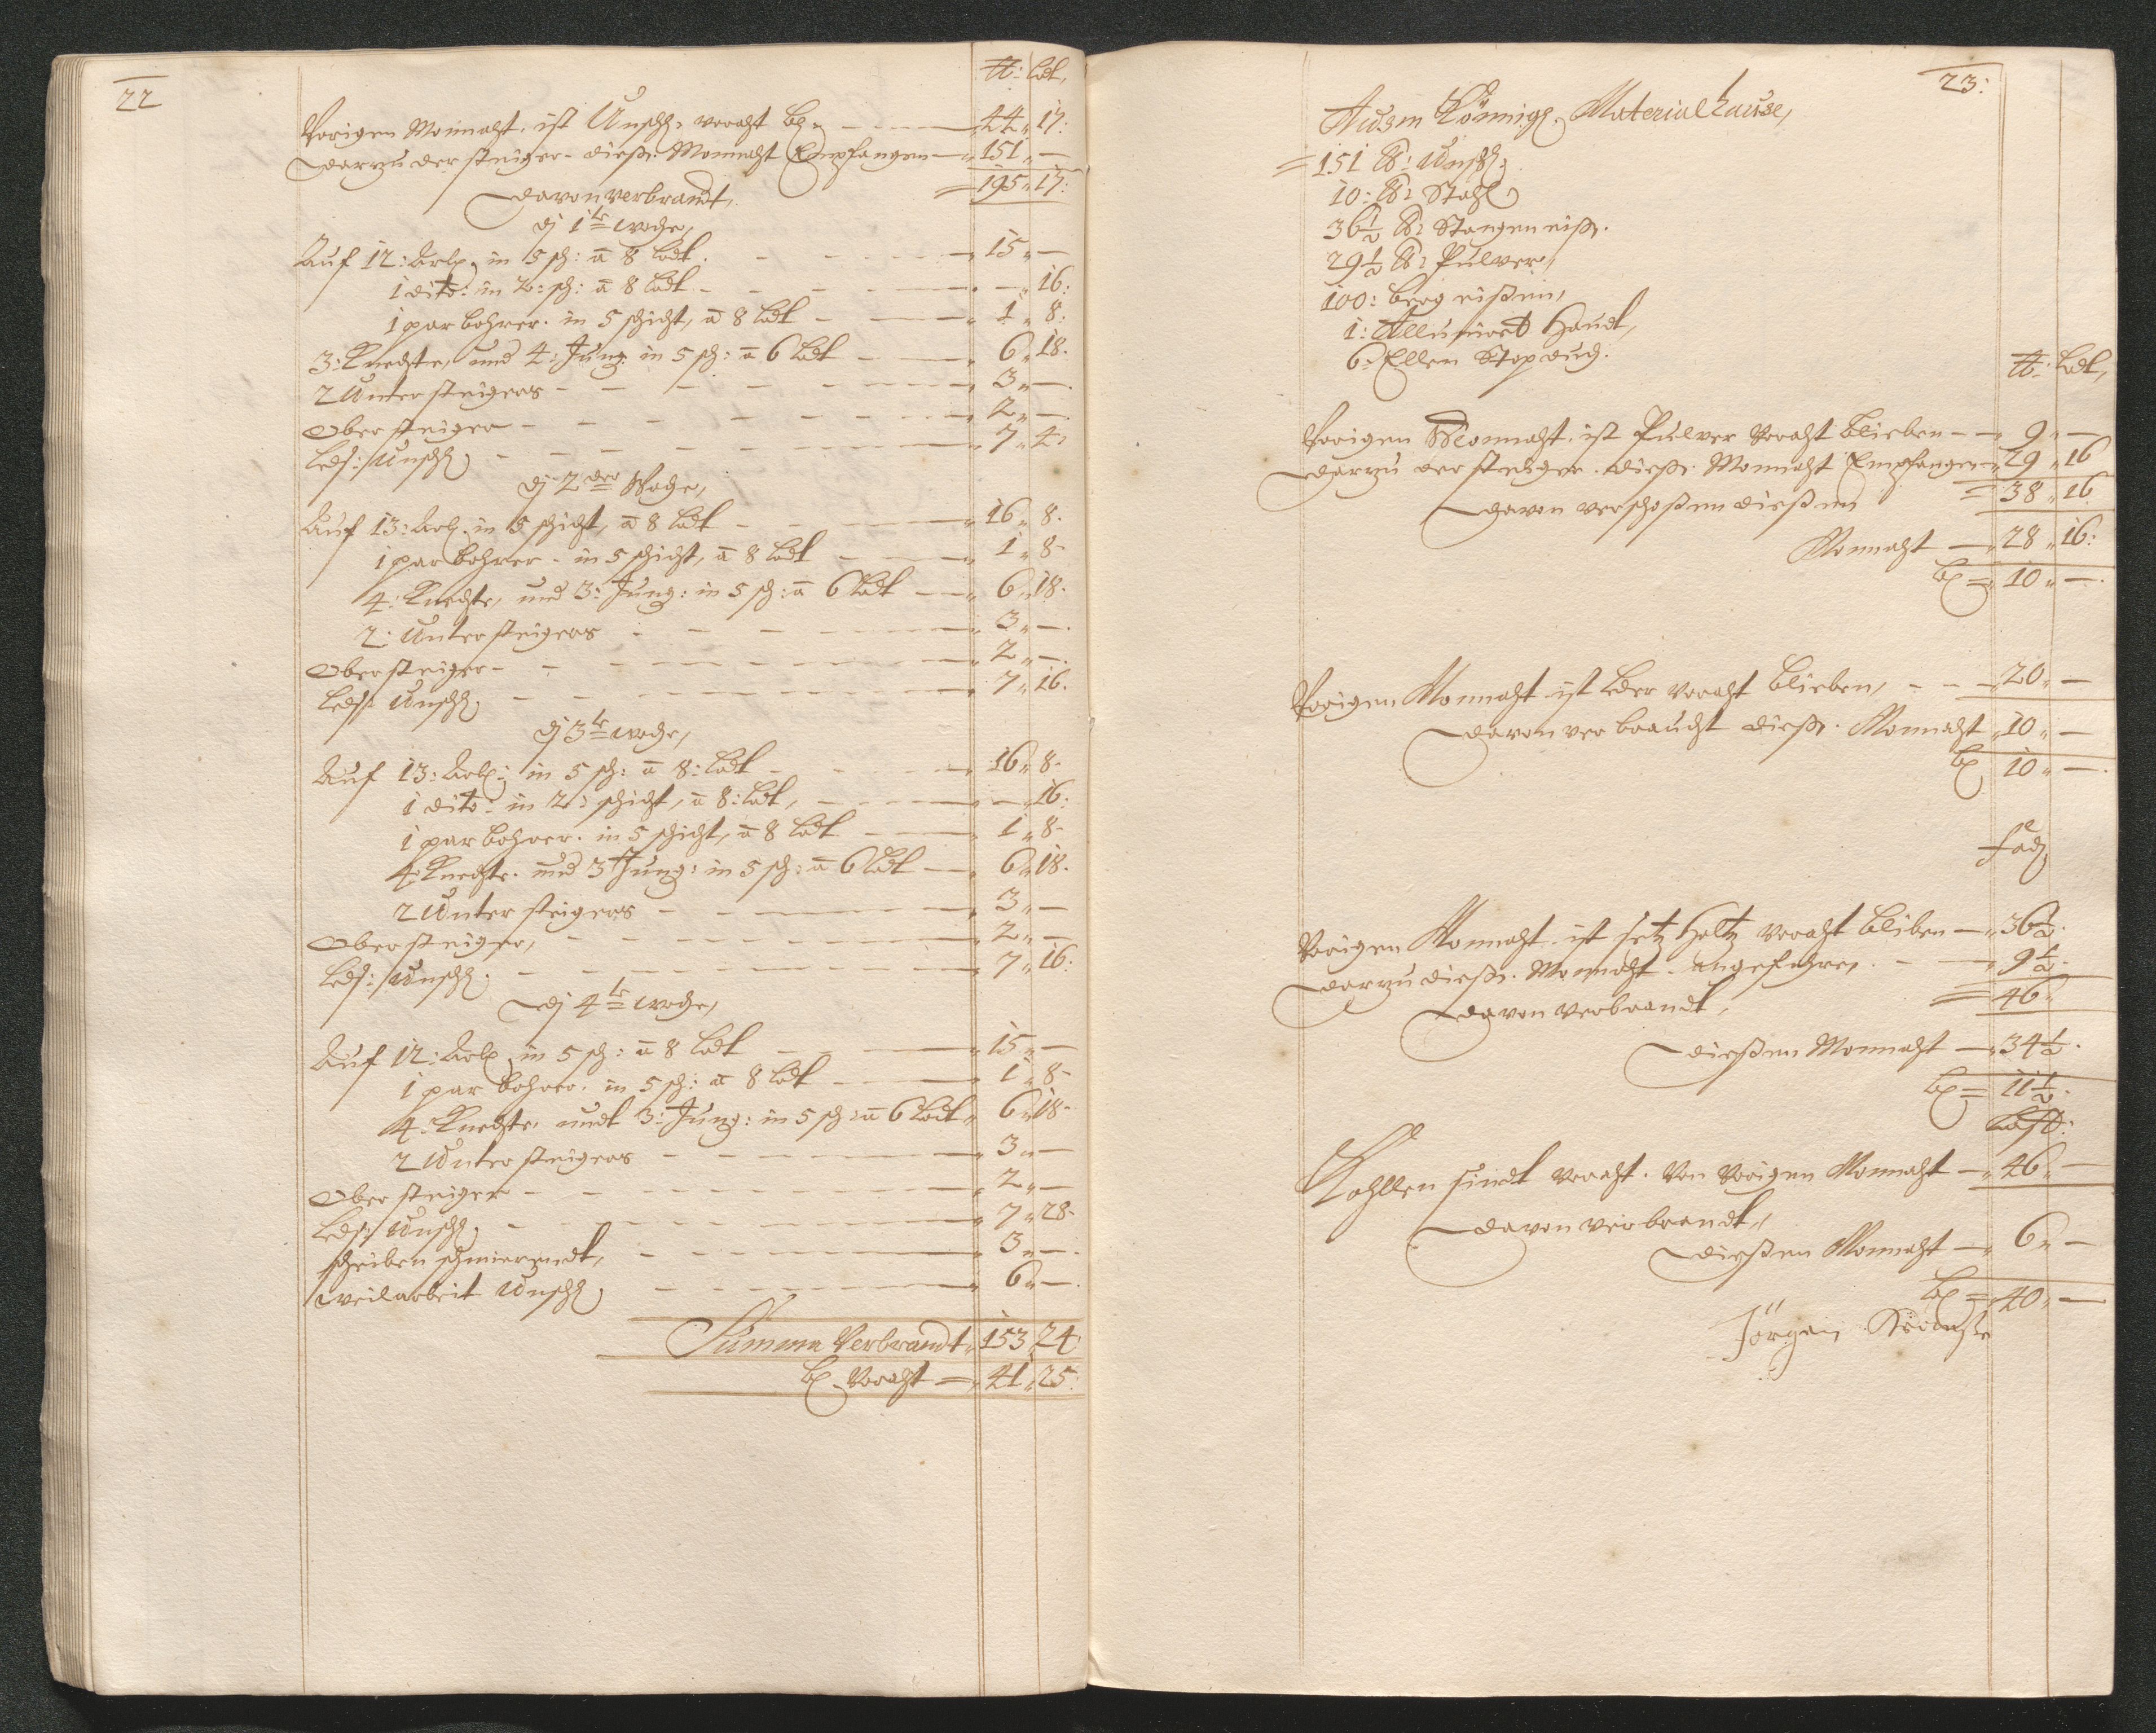 22
℔: Lodt,
Vorigen Monnaht. ist Unschl: voraht bl: — 44 „ 17:
Darzu der steiger. diesse. Monnaht Empfangen — „ 151 „ —
= 195 „ 17:
Davon verbrandt,
dj 1te woche,
Auf 12: Arb: in 5 sch: a 8 Lodt. — 15 „ —
1 dito: in 2: sch: a 8 Lodt — „ — „ 16:
1 par bohrer. in 5 schicht, a 8 Lodt — „ 1 „ 8:
3: Knechte, und 4: Jung: in 5 sch: a 6 Lodt — „ 6 „ 18.
2 Untersteigers — „ 3 „ —.
Obersteiger — „ 2 „ —.
Leds: Unschl: — „ 7 „ 4:
dj 2der Woche,
Auf 13: Arb: in 5 schicht, a 8 Lodt — „ 16 „ 8.
1 par bohrer. in 5 schicht, a 8 Lodt — „ 1 „ 8-
4: Knechte, und 3: Jung: in 5 sch: a 6 Lodt — „ 6 „ 18.
2: Untersteigers — „ 3 „ —.
Obersteiger — „ 2 „ —.
Leds: Unschl: — „ 7 „ 16.
dj 3te woche,
Auf 13: Arb: in 5 sch: a 8: Lodt — „ 16 „ 8-
1 dito: in 2: schicht, a 8: Lodt, — „ — „ 16:
1 par bohrer. in 5 schicht, a 8 Lodt — „ 1 „ 8-
4: Knechte. und 3 Jung: in 5 sch: a 6 Lodt — „ 6 „ 18.
2 Untersteigers — „ 3 „ —
Obersteiger, — „ 2 „ —
Leds: Unschl: — „ 7 „ 16:
dj 4te woche,
Auf 12: Arb: in 5 sch: a 8 Lodt — „ 15 „ —
1 par bohrer. in 5 sch: a 8 Lodt — „ 1 „ 8-
4: Knechte, undt 3: Jung: in 5 sch: a 6 Lodt „ 6 „ 18-
2 Untersteigers — „ 3 „ —
Obersteiger — „ 2 „ —
Leds: Unschl: — „ 7 „ 28-
scheiben schmierendt, — „ 3 „ —.
weilarbeit Unschl: — „ 6 „ —.
Summa Verbrandt „ 153 „ 24
bl: Voraht = „ 41 „ 25:
23:
Ausm Königl: Materialhause,
= 151 ℔: Unschl:
10: ℔: Stahl
36 1/2 ℔: Stangen eiss.
29 1/2 ℔: Pulver,
100: berg eissen,
1: Haudt,
6: Ellen
℔: Lodt,
Vorigen Monnaht. ist Pulver Voraht blieben — „ 9 „ —
Darzu der steiger. diesse. Monnaht Empfangen „ 29 „ 16
= 38 „ 16
Davon verschossen diessen
Monnaht — „ 28 „ 16:
bl: = „ 10 „ —.
Vorigen Monnaht ist Leder voraht blieben, — „ 20 „ —
Davon verbraucht diesse. Monnaht „ 10 „ —
bl: 10 „ —.
Fad:
Vorigen Monnaht. ist setz Holtz voraht bliben — „ 36 1/2.
Darzu diesse. Monnaht. angefahren. — „ 9 1/2.
= 46 „
Davon verbrandt,
diessen Monnaht — „ 34 1/2.
bl: = 11 1/2.
Last:
Kohllen sindt voraht. Von Vorigen Monnaht — „ 46 „ —
Davon verbrandt,
diessen Monnaht — „ 6 „ —
bl: = „ 40 „ —
Jörgen Krausse